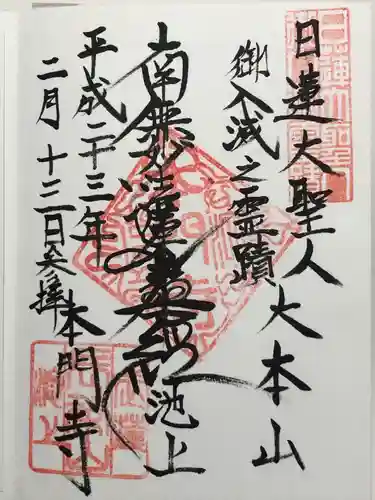 日蓮大聖人大本山
御入滅之霊蹟
南無妙法蓮華経 池上
平成二十三年
二月 十三日 本門寺